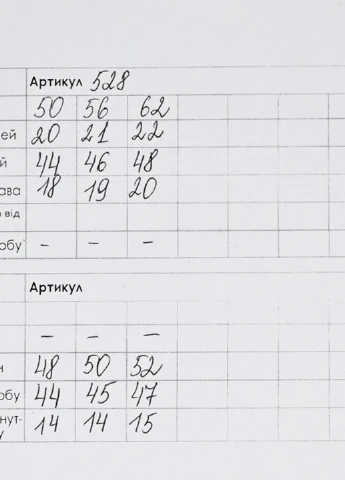 Артикул 528
50 56 62
ей 20 21 22
й 44 46 48
ава 18 19 20
від
обу - - -
Артикул
- - -
н 48 50 52
обу 44 45 47
нут- 14 14 15
у